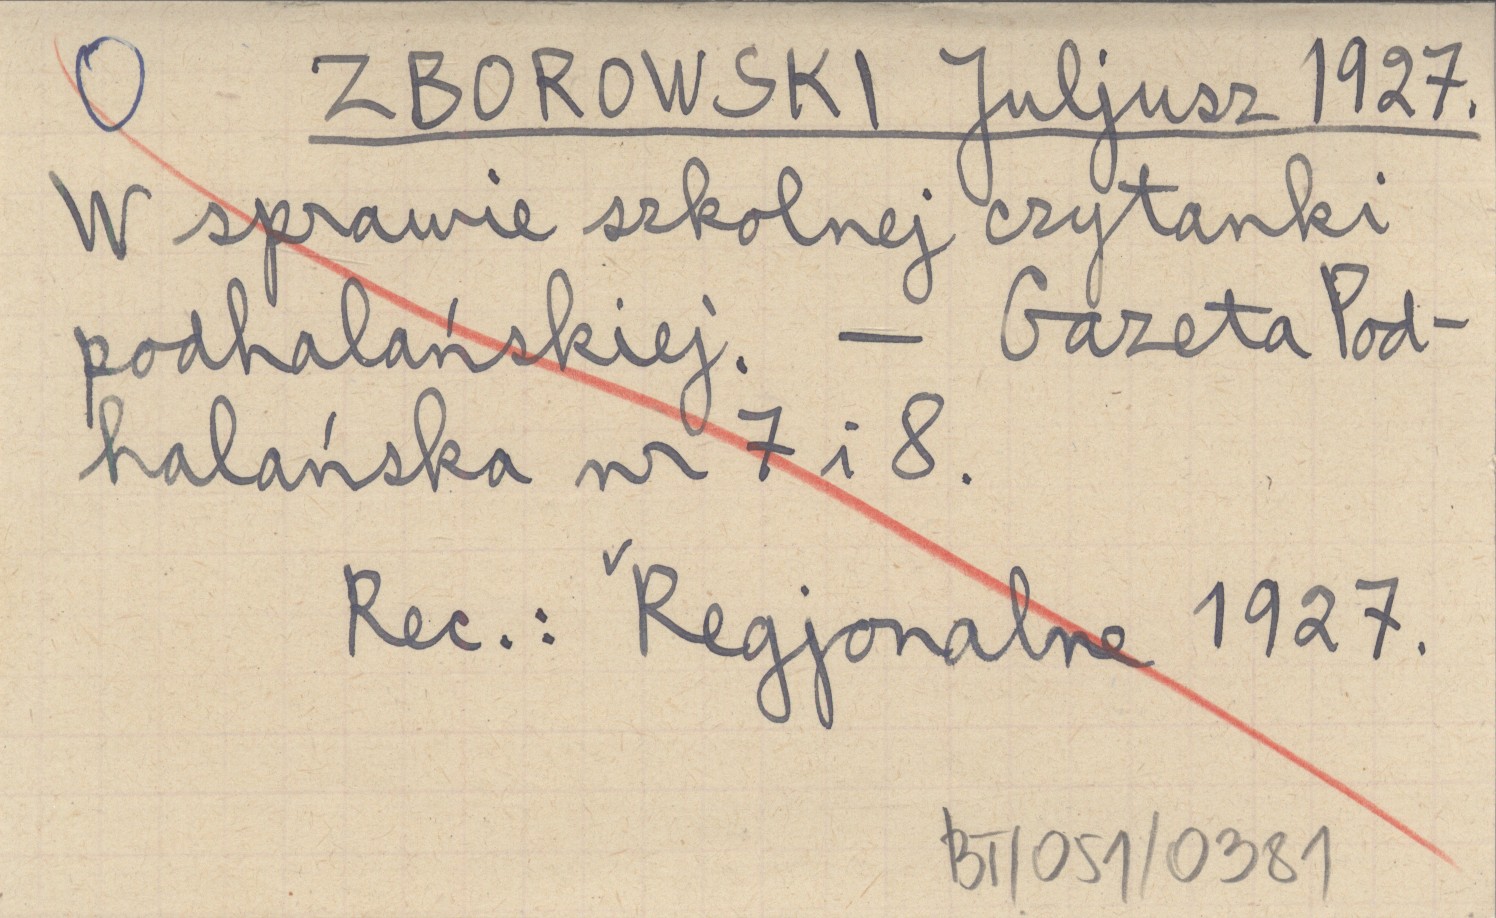 O ZBOROWSKI Juljusz 1927.
W sprawie szkolnej czytanki
podhalańskiej. — Gazeta Pod-
halańska nr 7 i 8.
Rec.: ᵛRegjonalne 1927.
BT/051/0381